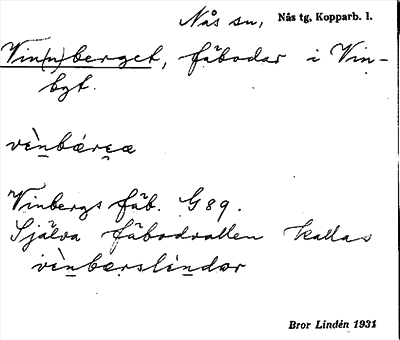 Nås sn, Nås tg, Kopparb. l.
Vin(n)berget, fäbodar i Vin-
bgt.
vìn̠bær̨ɛa
Vinbergs fäb. G89.
Själva fäbodvallen kallas
vìn̠bærslin̠dar
Bror Lindén 1931